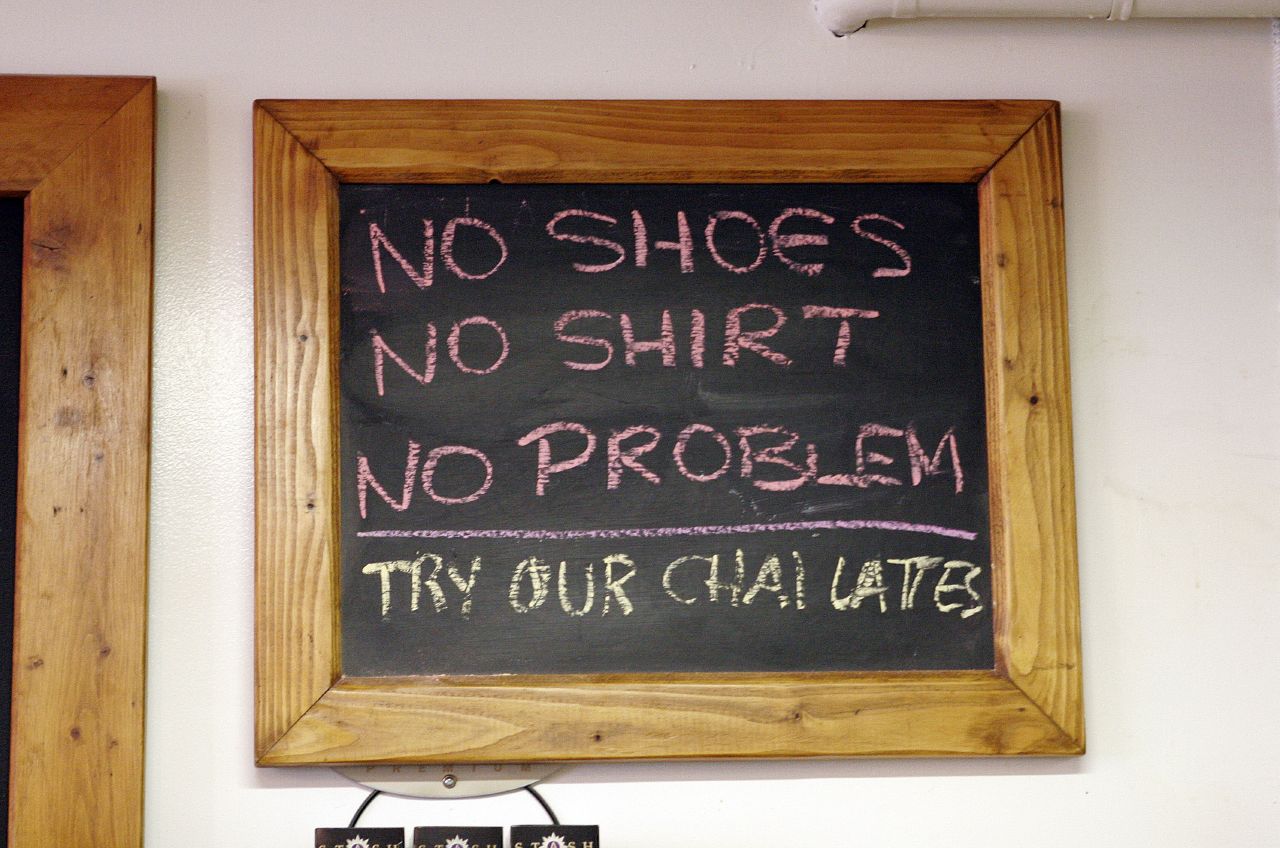 NO SHOES
NO SHIRT
NO PROBLEM
TRY OUR CHAI LATTES
PREMIUM
STASH STASH STASH